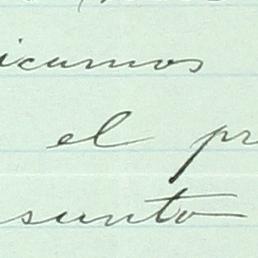 icamos
el pr
sunto